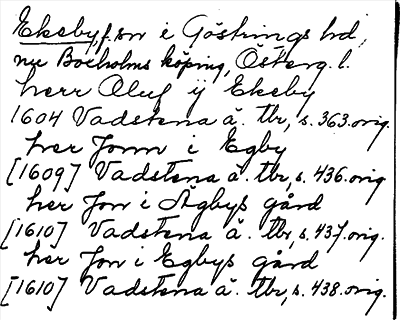 Ekeby, f. sn i Göstrings hd,
nu Boxholms köping, Österg. l.
herr Oluf ij Ekeby
1604 Vadstena ä. tbr, s. 363. orig.
her Jonn i Egby
[1609] Vadstena ä. tbr, s. 436. orig.
her Jon i Ägbys gård
[1610] Vadstena ä. tbr, s. 437. orig.
her Jon i Egbys gård
[1610] Vadstena ä. tbr, s. 438. orig.